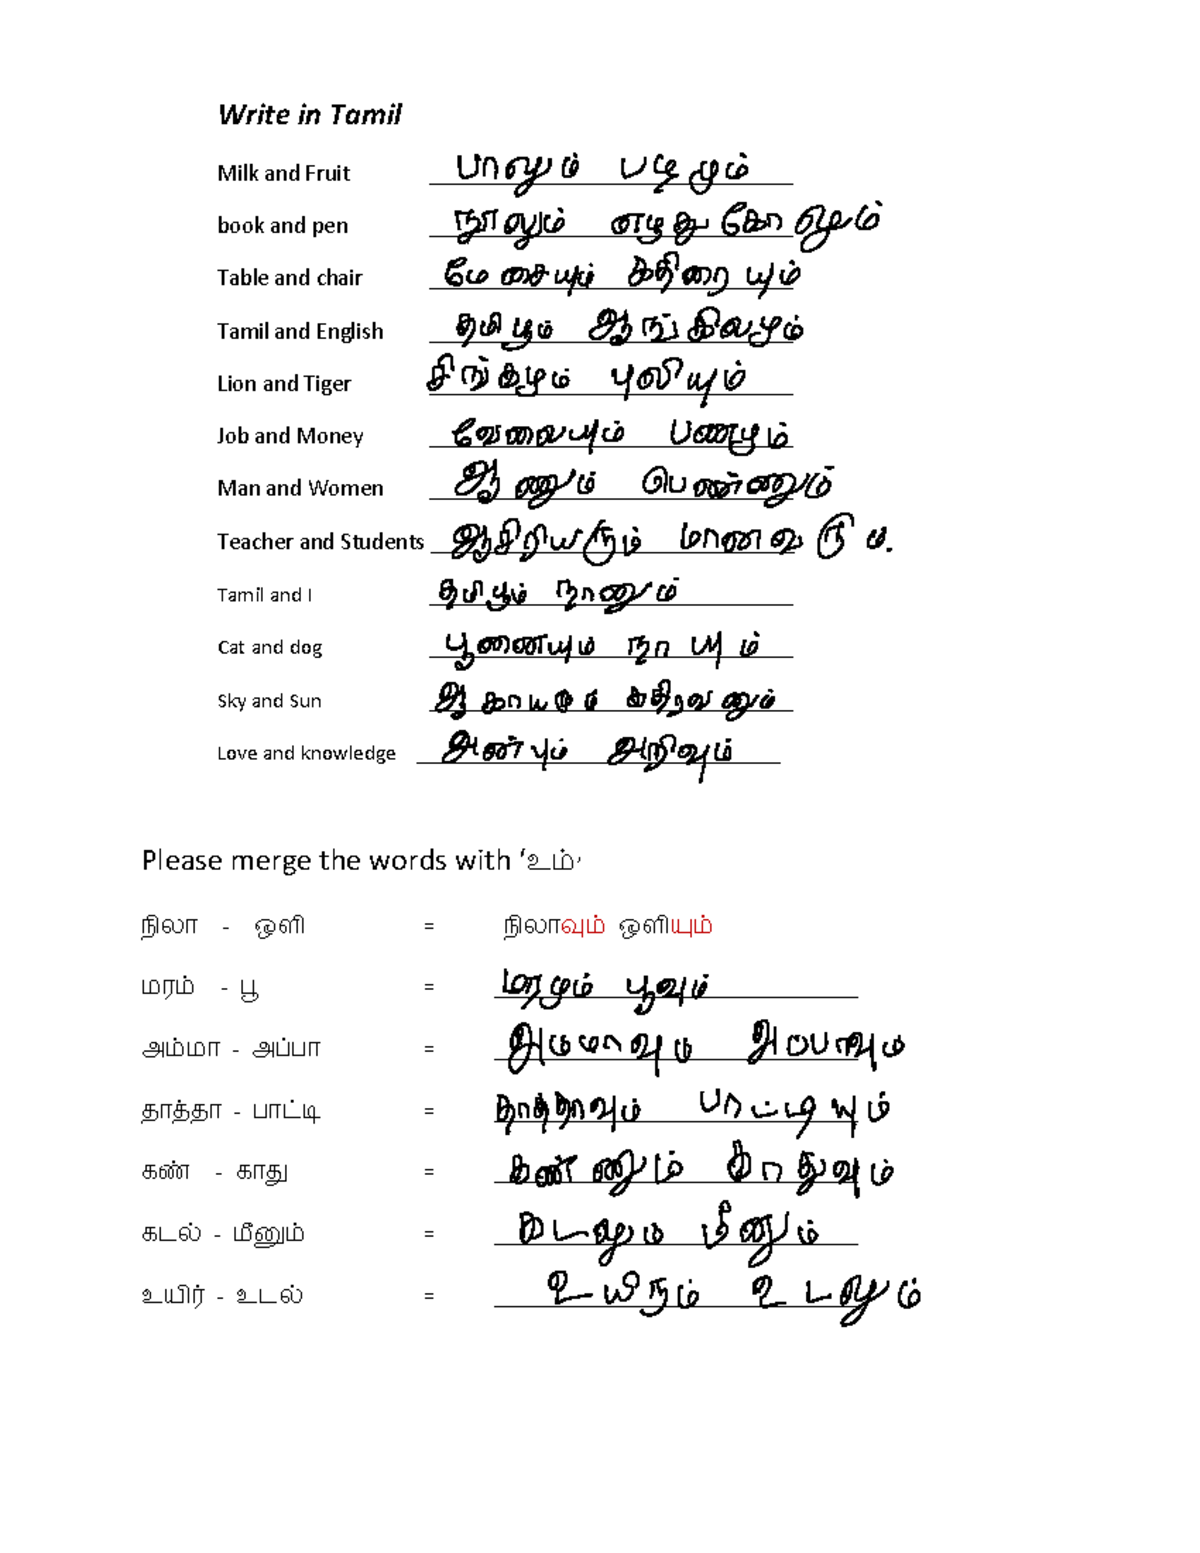 Write in Tamil
Milk and Fruit பாலும் பழமும்
book and pen நூலும் எழுதுகோலும்
Table and chair மேசையும் கதிரையும்
Tamil and English தமிழும் ஆங்கிலமும்
Lion and Tiger சிங்கமும் புலியும்
Job and Money வேலையும் பணமும்
Man and Women ஆணும் பெண்ணும்
Teacher and Students ஆசிரியரும் மாணவரும்.
Tamil and I தமிழும் நானும்
Cat and dog பூனையும் நாயும்
Sky and Sun ஆகாயமும் கதிரவனும்
Love and knowledge அன்பும் அறிவும்
Please merge the words with ‘உம்’
நிலா - ஒளி = நிலாவும் ஒளியும்
மரம் - பூ = மரமும் பூவும்
அம்மா - அப்பா = அம்மாவும் அப்பாவும்
தாத்தா - பாட்டி = தாத்தாவும் பாட்டியும்
கண் - காது = கண்ணும் காதுவும்
கடல் - மீனும் = கடலும் மீனும்
உயிர் - உடல் = உயிரும் உடலும்